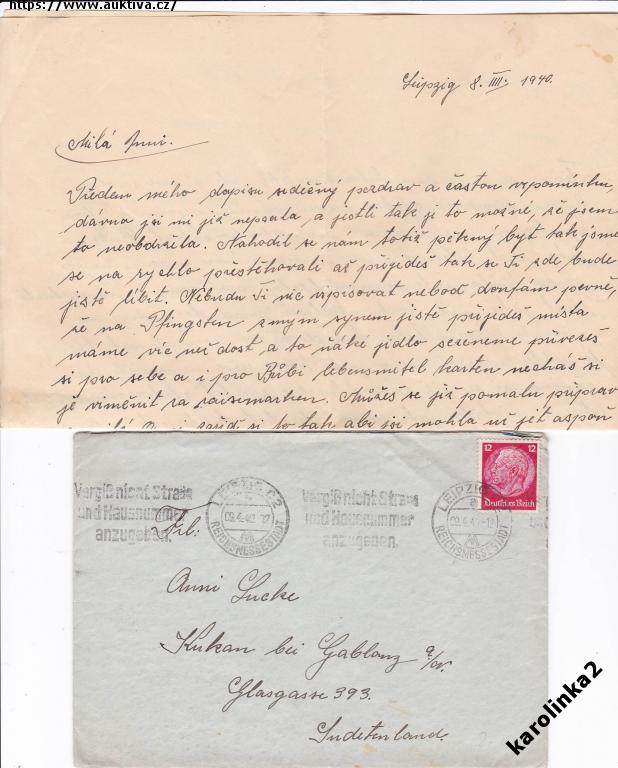 https://www.auktiva.cz/
Leipzig 8. IIII. 1940.
Milá Anni.
Předem mého dopisu srdičný pozdrav a častou vzpomínku,
dávno jsi mi již nepsala, a jestli tak je to možné, že jsem
to neobdržela. Nahodil se nám totiž pěkený byt tak jsme
se na rychlo přestěhovali až přijideš tak se Ti zde bude
jistě líbit. Nebudu Ti víc vipisovat neboď doufám pevně,
že na Pfingsten z mým synem jistě přijideš místa
máme víc než dost a to ňáké jidlo seženeme přivezeš
si pro sebe a i pro Bůbi lebensmitel karten necháš si
je viměnit za raisemarken. Můžeš se již pomalu připrav
si to tak abi jsi mohla už jet aspoň
12 12
Deutsches Reich
Vergiß nicht Straße
und Hausnummer
anzugeben.
LEIPZIG C2
09.4.40
REICHSMESSESTADT
Vergiß nicht Straße
und Hausnummer
anzugeben.
LEIPZIG
REICHSMESSESTADT
Anni Lucke
Kukan bei Gablonz a/N.
Glasgasse 393.
Sudetenland.
karolinka2